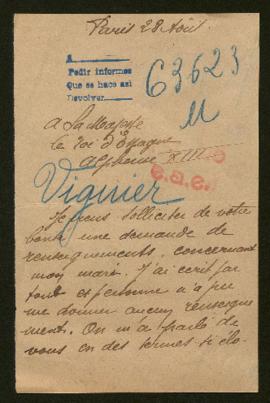 Paris 28 Août
A
Pedir informes
Que se hace así
Devolver
63623
M
a Sa Majesté
le roi d'Espagne
Alphonse XIII
Viguier
Je viens solliciter de votre
bonté une demande de
renseignements, concernant
mon mari. J'ai écrit par
tout et personne n'a pu
me donner aucun renseigne
ments. On m'a parlé de
vous en des termes si élo-